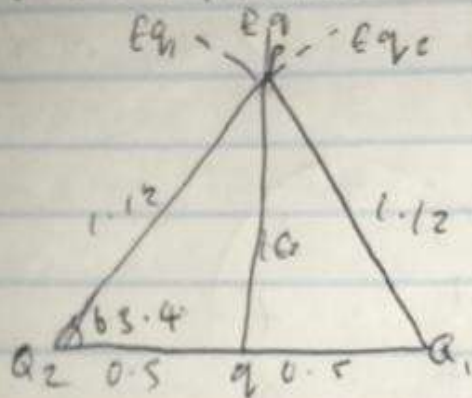 Eq
Eq1 Eq2
P
1.12 1.12
63.4
Q2 0.5 q 0.5 Q1